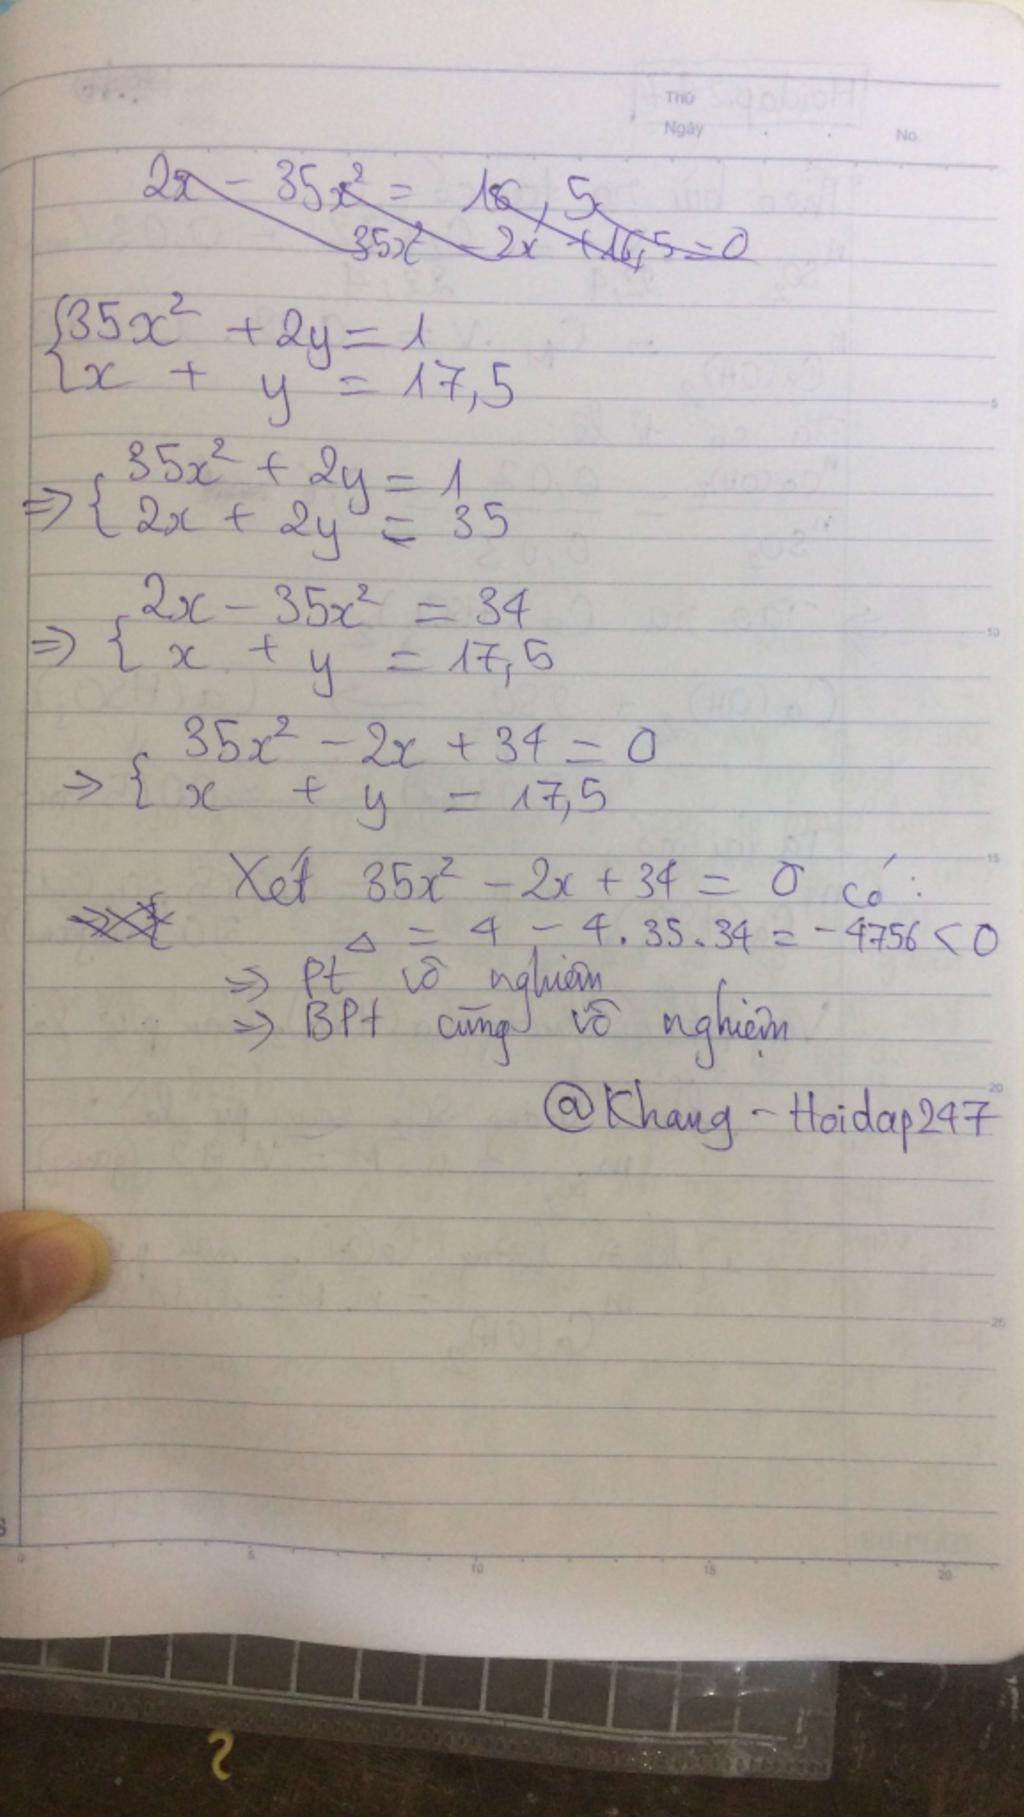 Thứ
Ngày
No.
2x - 35x² = 16,5
35x² - 2x + 16,5 = 0
{35x² + 2y = 1
{x + y = 17,5
=> {35x² + 2y = 1
{2x + 2y = 35
=> {2x - 35x² = 34
{x + y = 17,5
=> {35x² - 2x + 34 = 0
{x + y = 17,5
Xét 35x² - 2x + 34 = 0 có:
Δ = 4 - 4.35.34 = -4756 < 0
=> Pt vô nghiệm
=> BPt cũng vô nghiệm
@Khang - Hoidap247
5
10
15
20
25
0 5 10 15 20